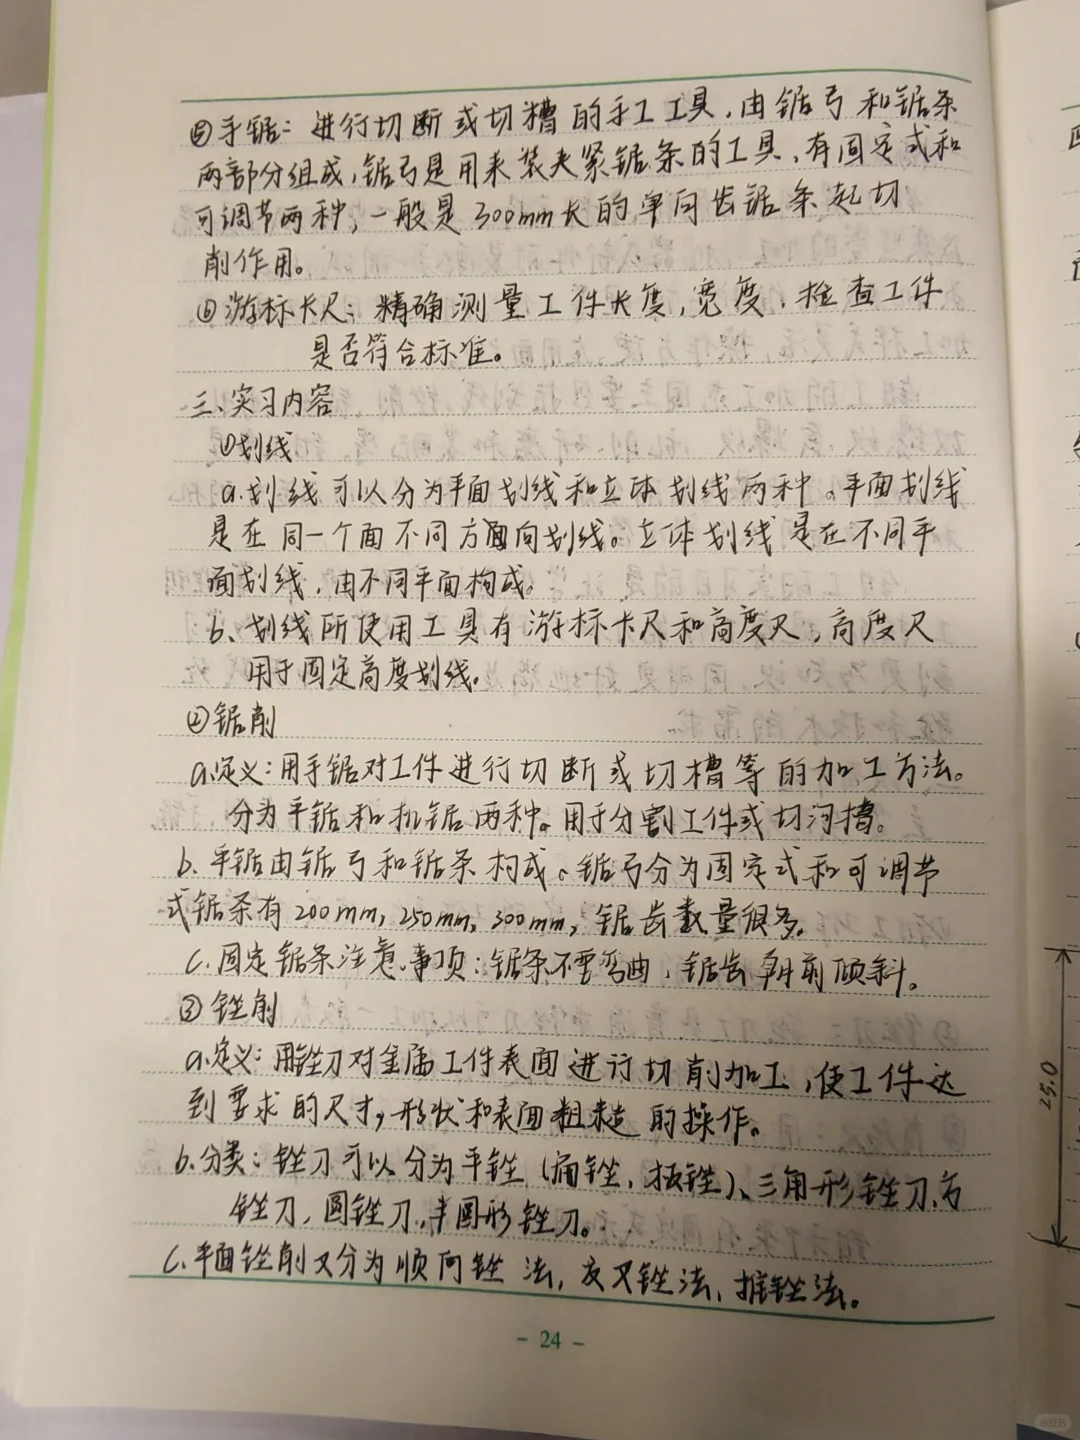 ⑤手锯：进行切断或切槽的手工工具，由锯弓和锯条
两部分组成，锯弓是用来装夹紧锯条的工具，有固定式和
可调节两种，一般是300mm长的单向齿锯条起切
削作用。
⑥游标卡尺：精确测量工件长度，宽度，检查工件
是否符合标准。
三、实习内容
①划线
a.划线可以分为平面划线和立体划线两种。平面划线
是在同一个面不同方向划线。立体划线是在不同平
面划线，由不同平面构成。
b、划线所使用工具有游标卡尺和高度尺，高度尺
用于固定高度划线。
②锯削
a.定义：用手锯对工件进行切断或切槽等的加工方法。
分为手锯和机锯两种。用于分割工件或切沟槽。
b.手锯由锯弓和锯条构成。锯弓分为固定式和可调节
式锯条有200mm，250mm，300mm，锯齿数量很多。
c.固定锯条注意事项：锯条不要弯曲，锯齿朝前倾斜。
③锉削
a.定义：用锉刀对金属工件表面进行切削加工，使工件达
到要求的尺寸，形状和表面粗糙的操作。
b.分类：锉刀可以分为平锉（扁锉，板锉）、三角形锉刀、方
锉刀，圆锉刀，半圆形锉刀。
c.平面锉削又分为顺向锉法，交叉锉法，推锉法。
- 24 -
25.0